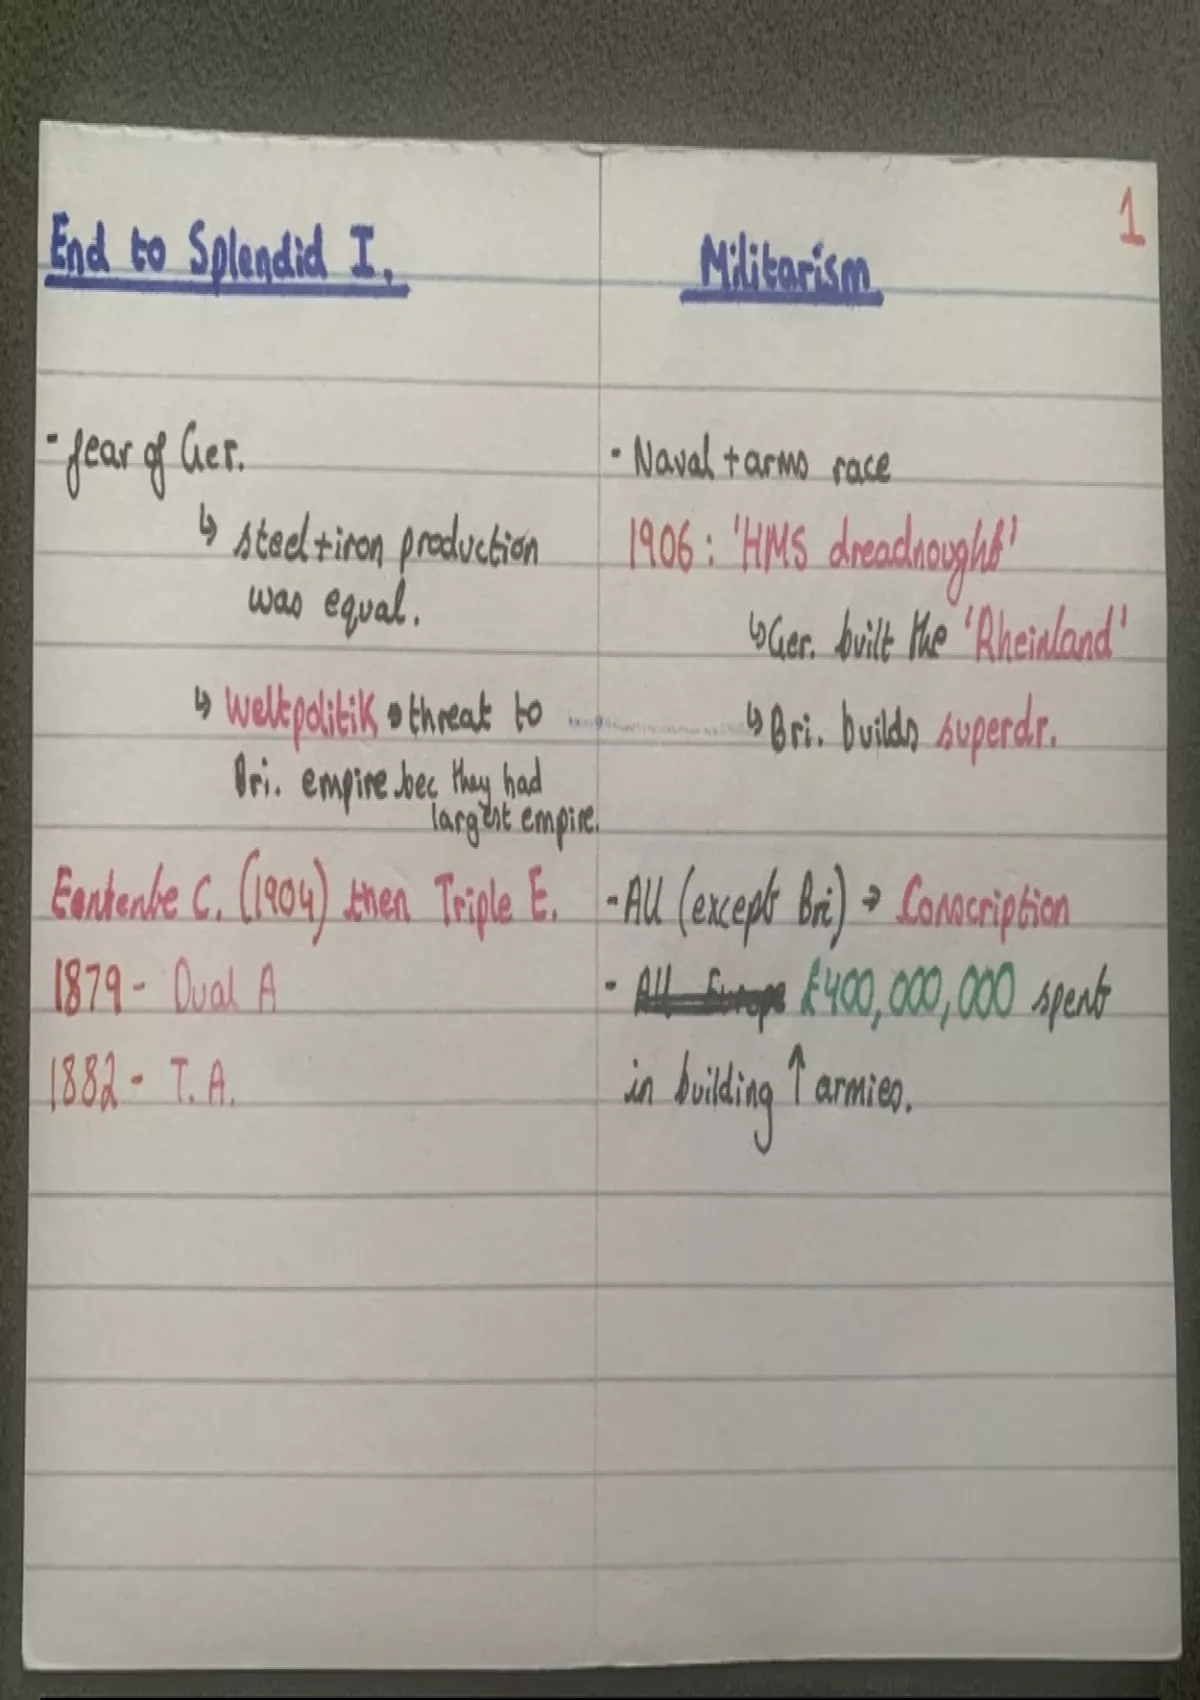 1
End to Splendid I.
- fear of Ger.
↳ steel + iron production
was equal.
↳ Weltpolitik → threat to
Bri. empire bec they had
largest empire.
Eentente C. (1904) then Triple E.
1879 - Dual A
1882 - T. A.
Militarism
- Naval + arms race
1906 : 'HMS dreadnought'
↳ Ger. built the 'Rheinland'
↳ Bri. builds superdr.
- All (except Bri) → Conscription
- All Europe £400,000,000 spent
in building ↑ armies.